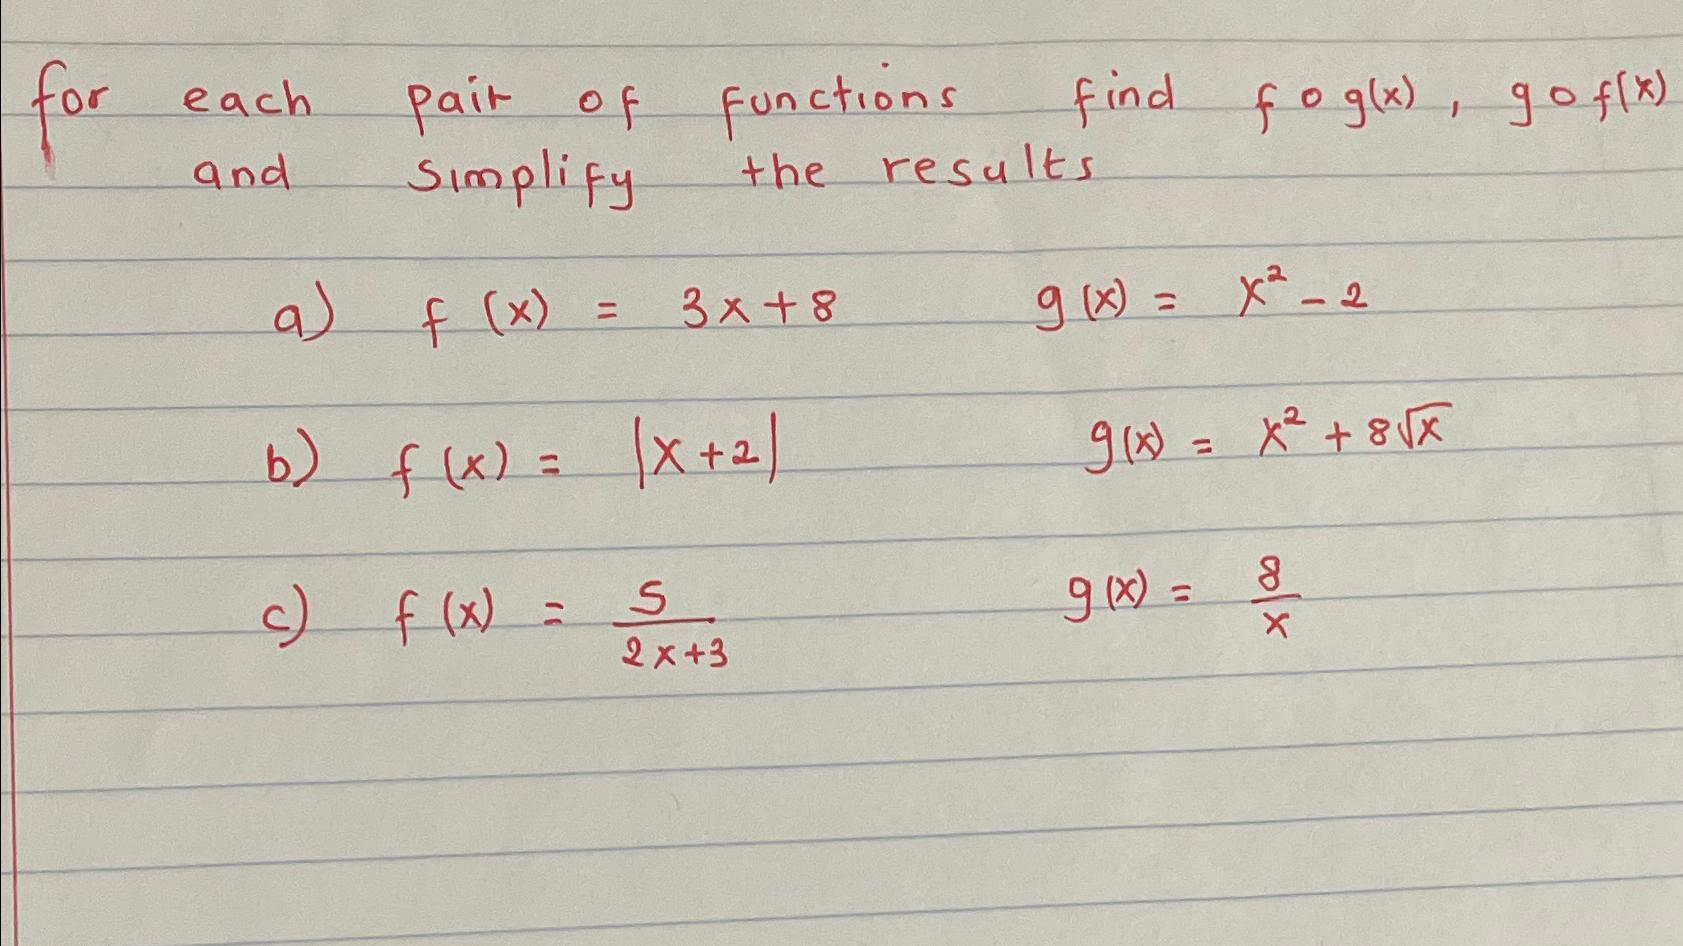 for each pair of functions find f o g(x), g o f(x)
and simplify the results
a) f(x) = 3x+8 g(x) = x² - 2
b) f(x) = |x+2| g(x) = x² + 8√x
c) f(x) = 5/(2x+3) g(x) = 8/x